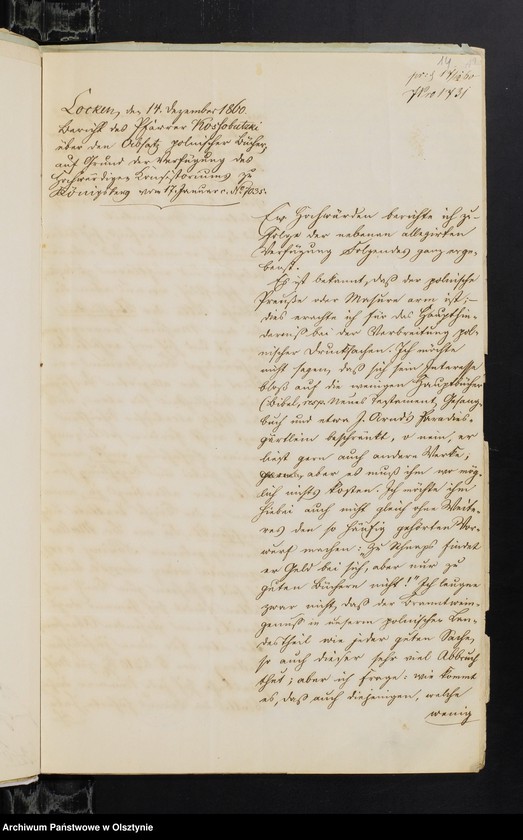 14
pr. d 18/12 60
No 1831
Locken, den 14. Dezember 1860.
Bericht des Pfarrer Kossobutzki
über den Absatz polnischer Bücher,
auf Grund der Verfügung des
Hochwürdigen Konsistoriums zu
Königsberg vom 17. Januar c. No 7035.
Ew. Hochwürden berichte ich zu-
folge der nebenan allegirten
Verfügung Folgendes ganz erge-
benst.
Es ist bekannt, daß der polnische
Preuße oder Masure arm ist;
dies erachte ich für das Haupthin-
derniß bei der Verbreitung pol-
nischer Drucksachen. Ich möchte
nicht sagen, daß sich sein Interesse
bloß auf die wenigen Hauptbücher
(Bibel, resp. Neues Testament, Gesang-
buch und etwa J. Arnds Paradies-
gärtlein beschränkt, o nein, er
liest gern auch andere Werke;
aber es muß ihm wo mög-
lich nichts kosten. Ich möchte ihm
hiebei auch nicht gleich ohne Weite-
res den so häufig gehörten Vor-
wurf machen: "Zu Schnaps findet
er Geld bei sich, aber nur zu
guten Büchern nicht!" Ich leugne
zwar nicht, daß der Branntwein-
genuß in unserm polnischen Lan-
destheil wie jeder guten Sache,
so auch dieser sehr viel Abbruch
thut; aber ich frage: wie kommt
es, daß auch diejenigen, welche
wenig
Archiwum Państwowe w Olsztynie